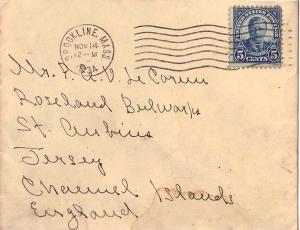 BROOKLINE, MASS.
NOV 14
12-M
5 CENTS 5
Mr. P. D. Le Cornu
Roseland Bulwarks
St. Aubins
Jersey
Channel Islands
England